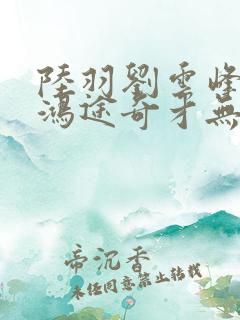 陸羽劉雲峰
鴻途奇才無
帝沉香
未经同意禁止转载